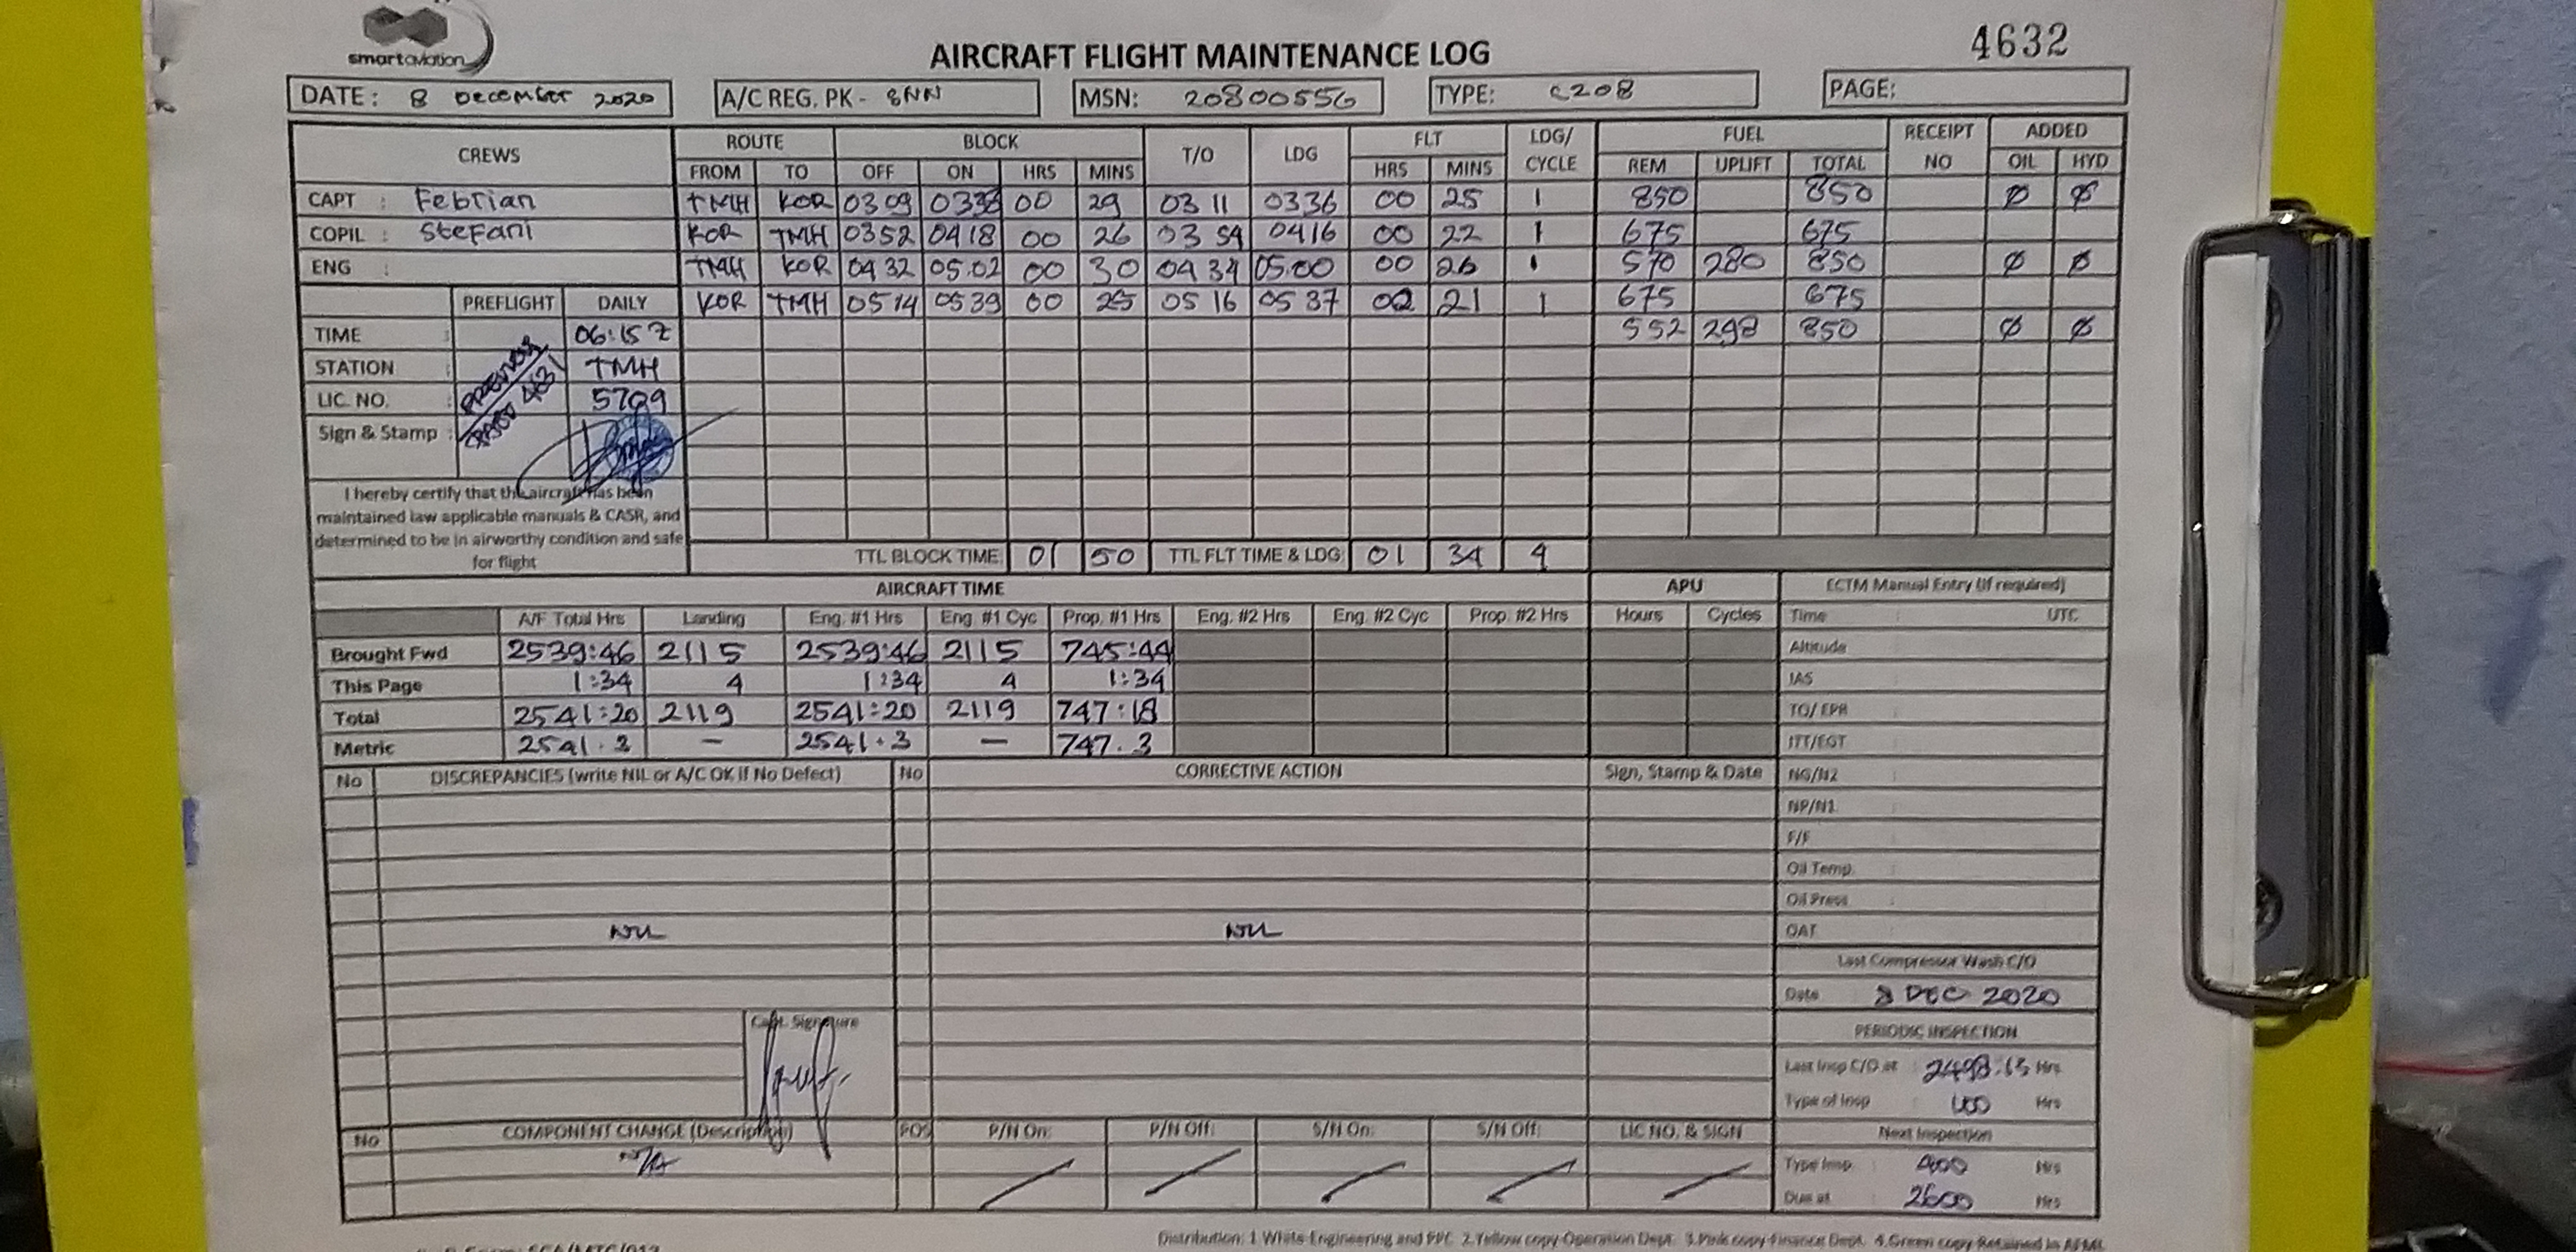 smartaviation
AIRCRAFT FLIGHT MAINTENANCE LOG
4632
DATE: 8 DECEMBER 2020
A/C REG. PK - SNN
MSN: 20800556
TYPE: C208
PAGE:
CREWS ROUTE BLOCK T/O LDG FLT LDG/ CYCLE FUEL RECEIPT NO ADDED
FROM TO OFF ON HRS MINS HRS MINS REM UPLIFT TOTAL OIL HYD
CAPT : Febrian TMH KOR 0309 0338 00 29 03 11 0336 00 25 1 850 850 Ø Ø
COPIL : Stefani KOR TMH 0352 0418 00 26 03 54 0416 00 22 1 675 675
ENG : TMH KOR 04 32 05.02 00 30 04 34 05.00 00 26 1 570 280 850 Ø Ø
PREFLIGHT DAILY KOR TMH 0514 0539 00 25 05 16 05 37 00 21 1 675 675
TIME : 06:15 Z 552 298 850 Ø Ø
STATION : TMH
LIC. NO. : 5709
PREVIOUS
4631
Sign & Stamp :
I hereby certify that the aircraft has been
maintained law applicable manuals & CASR, and
determined to be in airworthy condition and safe
for flight
TTL BLOCK TIME 01 50 TTL FLT TIME & LDG 01 34 4
AIRCRAFT TIME APU ECTM Manual Entry (if required)
A/F Total Hrs Landing Eng. #1 Hrs Eng. #1 Cyc Prop. #1 Hrs Eng. #2 Hrs Eng. #2 Cyc Prop. #2 Hrs Hours Cycles Time UTC
Brought Fwd 2539:46 2115 2539:46 2115 745:44 Altitude
This Page 1:34 4 1:34 4 1:34 IAS
Total 2541:20 2119 2541:20 2119 747:18 TO/ EPR
Metric 2541.3 — 2541.3 — 747.3 ITT/EGT
No DISCREPANCIES (write NIL or A/C OK if No Defect) No CORRECTIVE ACTION Sign, Stamp & Date NG/N2
NP/N1
F/F
Oil Temp.
Oil Press
NIL NIL OAT
Last Compressor Wash C/O
Date 8 DEC 2020
Capt. Signature
PERIODIC INSPECTION
Last Insp C/O at : 2498:15 Hrs
Type of Insp : 100 Hrs
No COMPONENT CHANGE (Description) POS P/N On: P/N Off: S/N On: S/N Off: LIC NO. & SIGN Next Inspection
N/A Type Insp : 400 Hrs
Due at : 2600 Hrs
Distribution: 1 White-Engineering and PPC 2.Yellow copy-Operation Dept. 3.Pink copy-Finance Dept. 4.Green copy-Retained in AFML